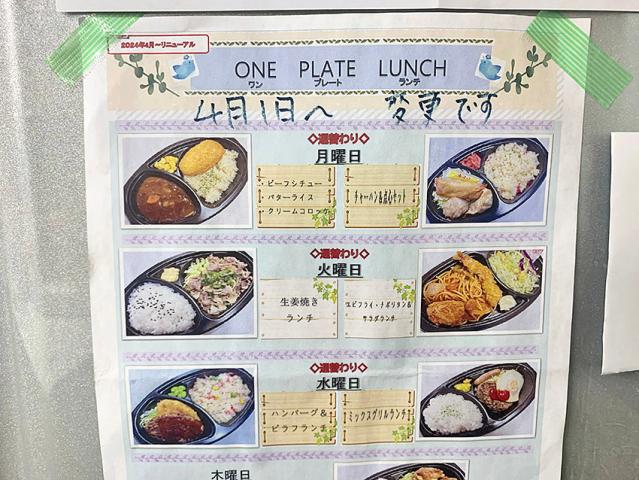 2024年4月～リニューアル
ONE PLATE LUNCH
ワン プレート ランチ
4月1日へ 変更です
◇週替わり◇
月曜日
・ビーフシチュー
・バターライス
・クリームコロッケ
チャーハン&点心セット
◇週替わり◇
火曜日
生姜焼き
ランチ
エビフライ・ナポリタン&
サラダランチ
◇週替わり◇
水曜日
ハンバーグ&
ピラフランチ
ミックスグリルランチ
木曜日